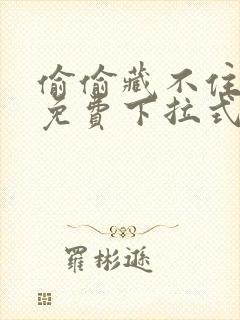 偷偷藏不住
免费下拉式
羅彬遜